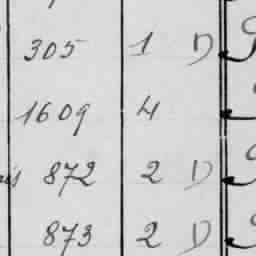 305 1 D
1609 4
872 2 D
873 2 D